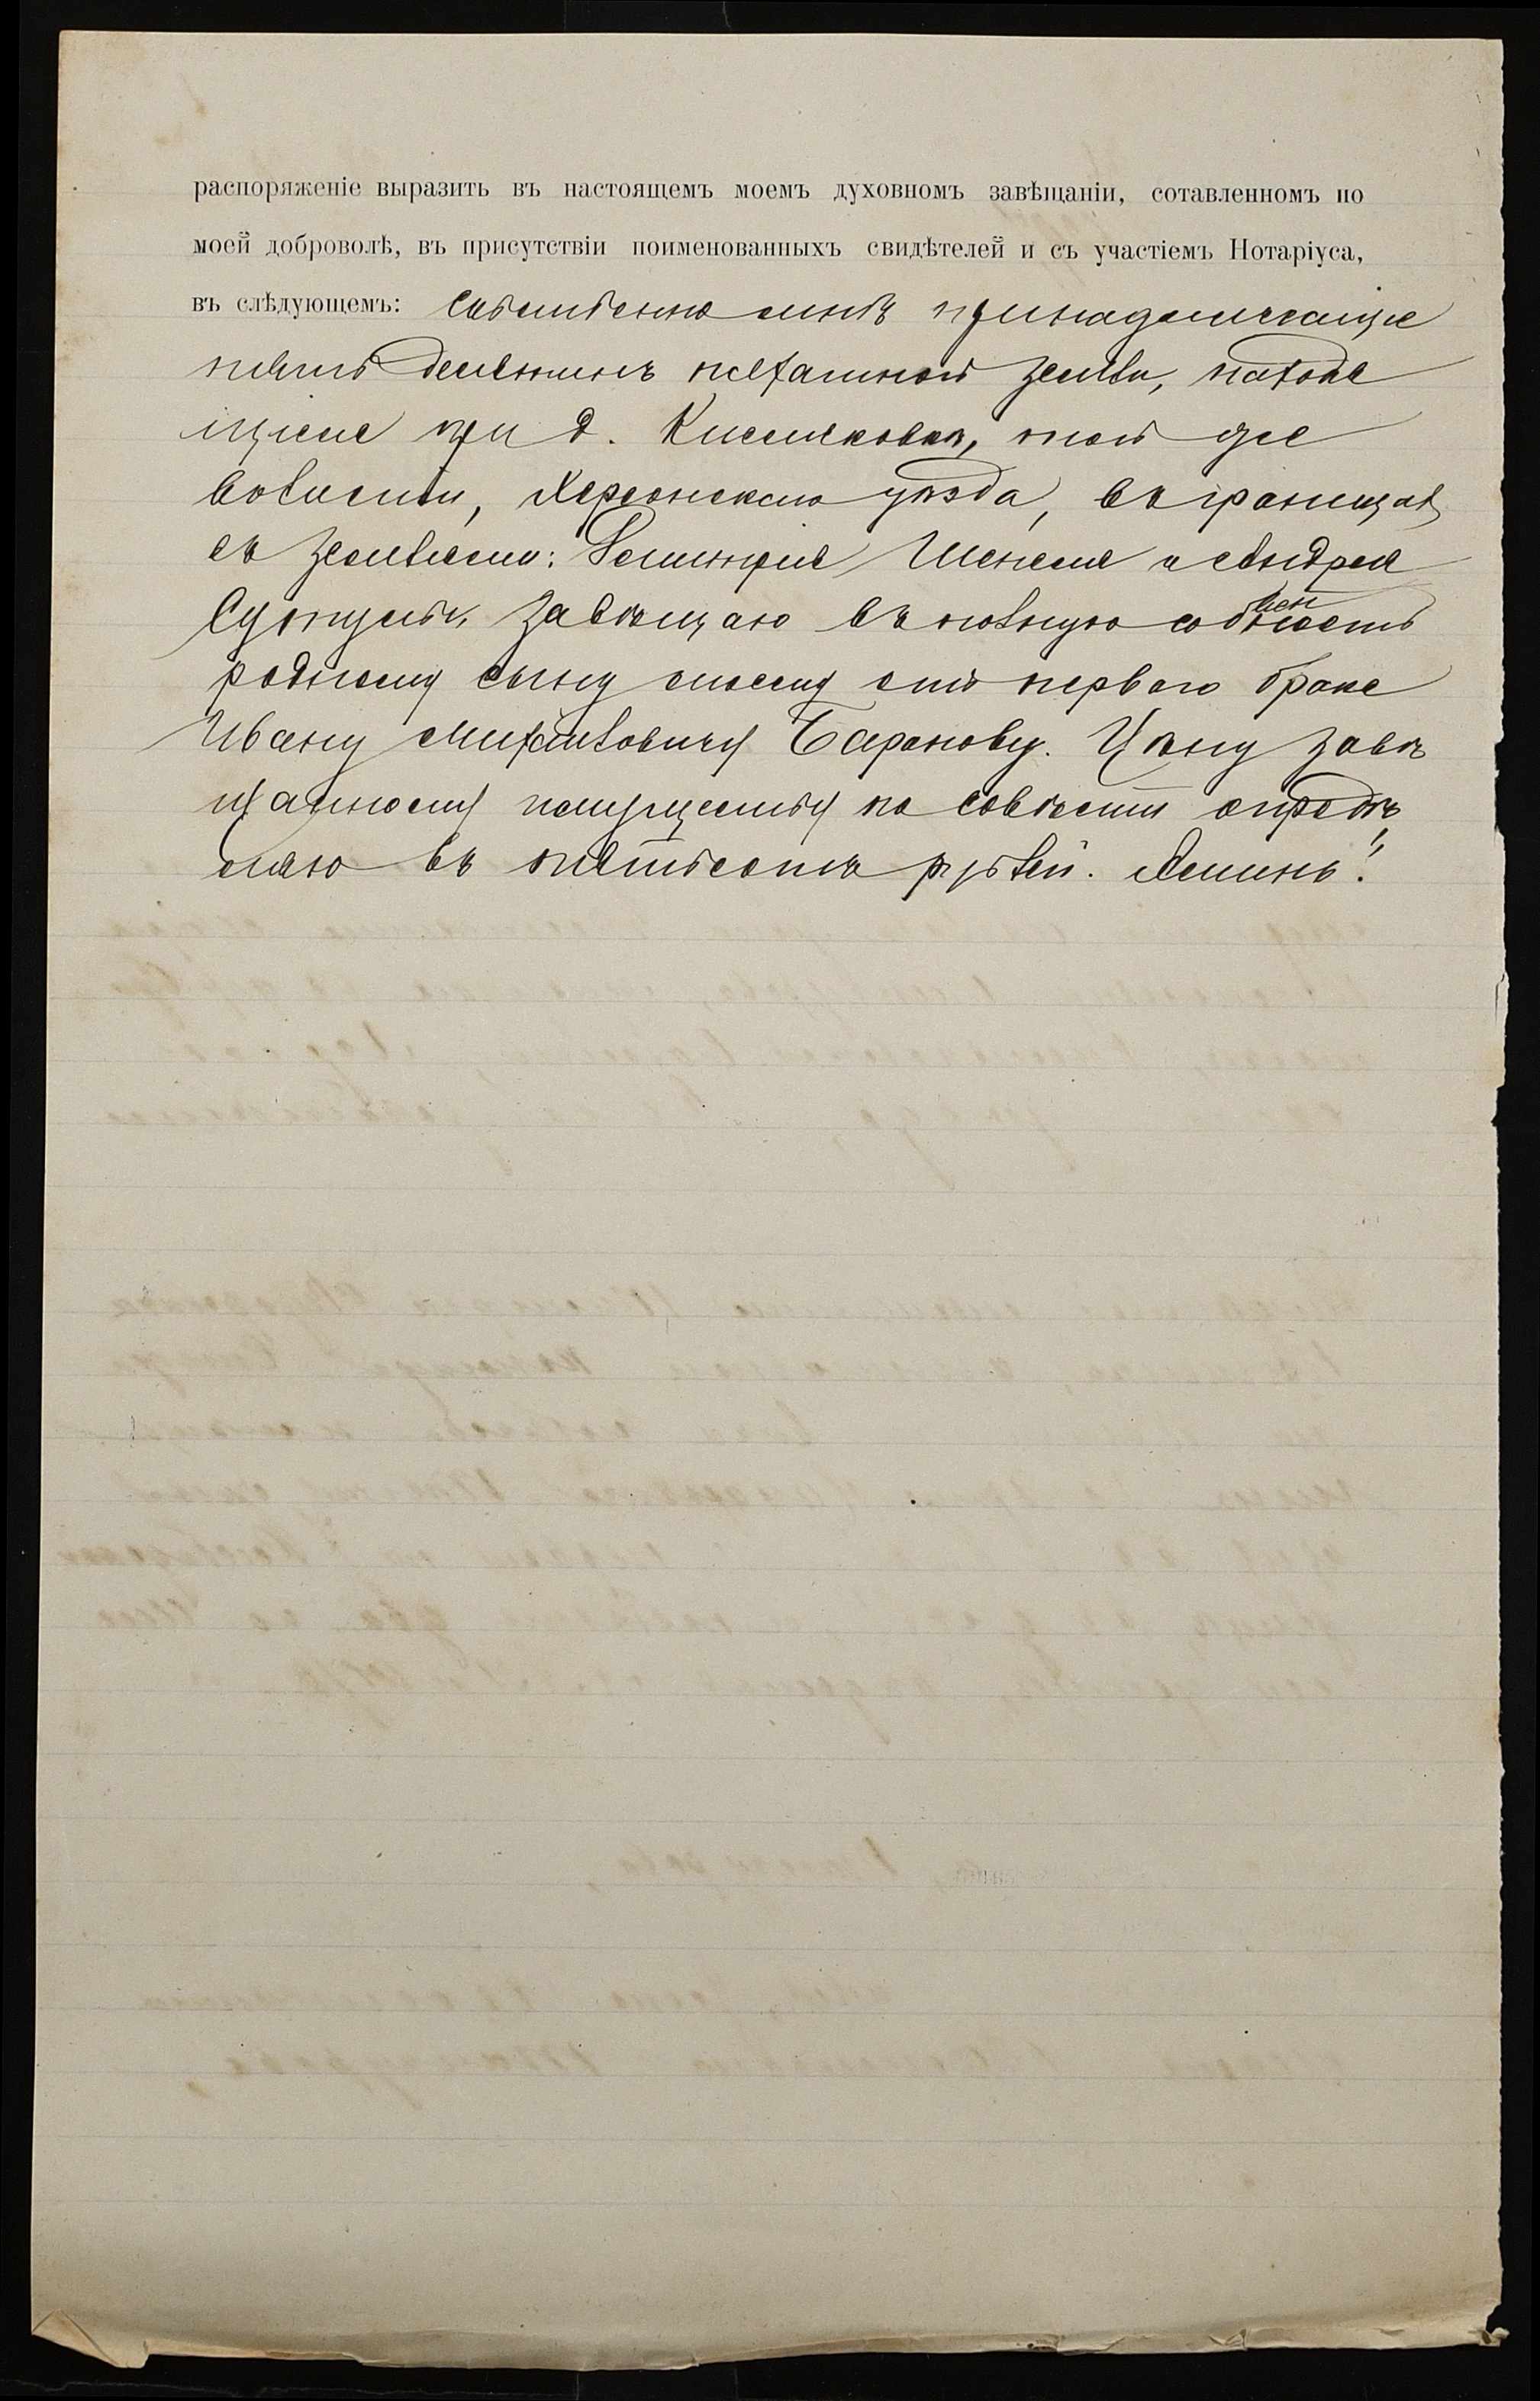 распоряженіе выразить въ настоящемъ моемъ духовномъ завѣщаніи, сотавленномъ по
моей доброволѣ, въ присутствіи поименованныхъ свидѣтелей и съ участіемъ Нотаріуса,
въ слѣдующемъ: собственно мнѣ принадлежащіе
пять десятинъ пахатной земли, находя
щіяся при д. Киселяковкѣ, той же
волости, Херсонскаго уѣзда, въ границахъ
съ землями: Димитрія и Андрея
завѣщаю въ полную собвенность
родному сыну моему отъ перваго брака
Ивану Михайловичу Баранову. Цѣну завѣ
щанному имуществу по совѣсти опредѣ
ляю въ пятьсотъ рублей. Аминь!